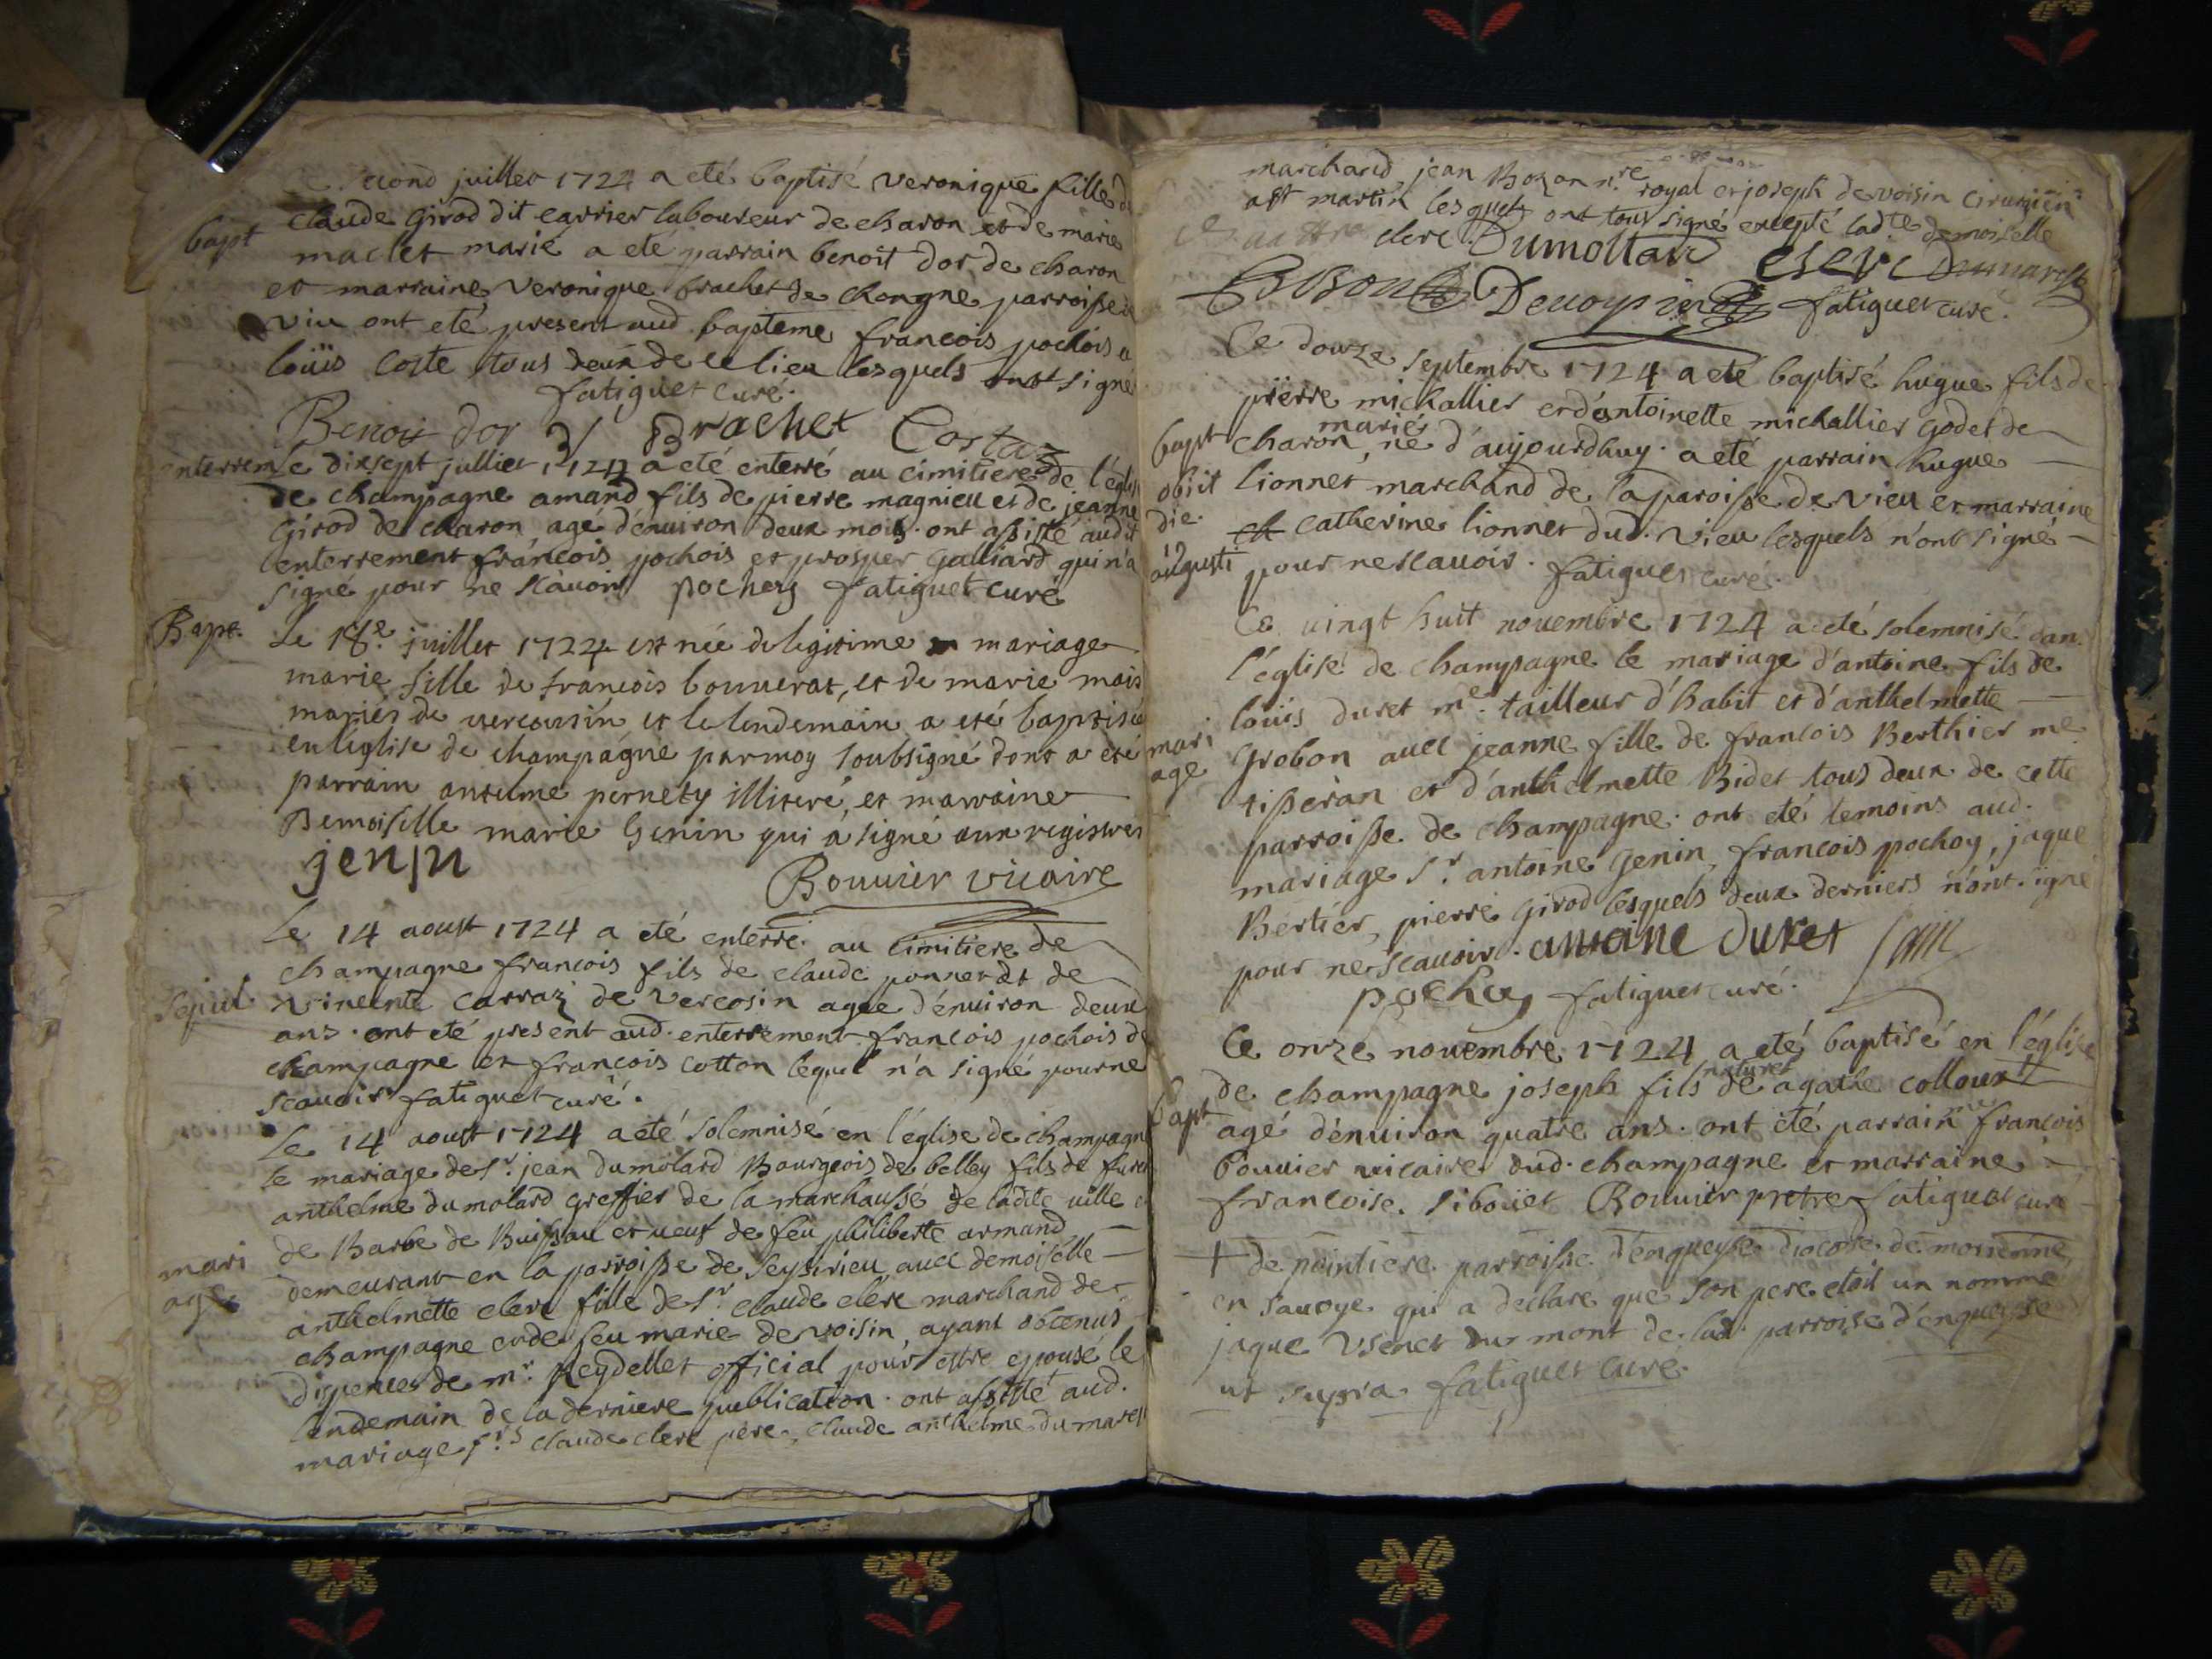 second juillet 1724 a eté baptisé veronique fille de
bapt claude Girod dit carrier laboureur de charon et de marie
maclet marié a eté parrain benoit dor de charon
et marraine veronique brachet de chongne parroisse de
viu ont eté present aud. bapteme francois pochois et
loüis coste tous deux de ce lieu lesquels ont signé
fatiguet curé.
Benoit dor Brachet Costaz
enterrem Le dixsept jullier 1724 a eté enterré au cimitiere de l'église
de champagne amand fils de pierre magnieu et de jeanne
Girod de charon agé d'enuiron deux mois. ont assisté audit
enterrement francois pochois et prosper Galliard qui n'a
signé pour ne scauoir pochoy fatiguet curé
Bapt. Le 18e juillet 1724 est née de legitime mariage
marie fille de francois bonnerat, et de marie mois
mariés de vercoussin et le lendemain a eté baptisée
en leglise de champagne par moy soubsigné dont a eté
parrain antelme pernety illiteré, et marraine
Demoiselle marie Genin qui a signé aux registres
jenin
Bouuier vicaire
Le 14 aoust 1724 a eté enterré au cimitiere de
champagne francois fils de claude ponnerat de
Sepul vincente carraz de vercosin agée d'enuiron deux
ans. ont eté present aud. enterrement francois pochois de
champagne et francois cotton lequel n'a signé pour ne
scauoir fatiguet curé.
Le 14 aoust 1724 a eté solemnisé en l'église de champagne
le mariage de sr. jean dumolard Bourgeois de belley fils de fu sr
anthelme dumolard greffier de la marchaussé de ladite uille et
de Barbe de Buisson et ueuf de feu philiberte armand
mari demeurant en la parroisse de seysirieu auec demoiselle
age anthelmette clerc fille de sr. claude clerc marchand de
champagne et de feu marie devoisin, ayant obtenus
dispences de mr. Reydellet official pour estre epousé le
lendemain de la derniere publication. ont assisté aud.
mariage srs. claude clerc père, claude anthelme dumarest
marchand, jean Bozon nre royal et joseph devoisin cirurgien
a st martin lesquels ont tous signé excepté ladte demoiselle
clerc Dumollard clerc Dumarest
Bozon Deuoysin fatiguet curé.
Ce douze septembre 1724 a eté baptisé hugue fils de
pierre michallier et d'antoinette michallier godet de
mariés
bapt charon, né d'aujourdhuy. a eté parrain hugue
obiit lionnet marchand de la paroisse de vieu et marraine
die. et catherine lionnet dud. vieu lesquels n'ont signé
19 augusti pour ne scauoir. fatiguet curé.
Ce uingt huit nouembre 1724 a eté solemnisé dans
l'église de champagne le mariage d'antoine fils de
loüis duret me. tailleur d'habit et d'anthelmette
mari Grobon auec jeanne fille de francois Berthier me
age tisseran et d'anthelmette Bidet tous deux de cette
parroisse de champagne. ont eté temoins aud.
mariage sr. antoine Genin, francois pochoy, jaque
Bertier, pierre Girod lesquels deux derniers n'ont signé
pour ne scauoir. antoine duret
pochoy fatiguet curé.
Ce onze nouembre 1724 a eté baptisé en l'église
naturel
de champagne joseph fils de agathe colloux +
bapt agé d'enuiron quatre ans. ont eté parrain mre francois
bouuier uicaire dud. champagne et marraine
francoise. siboüet Bouuier pretre fatiguet curé
+ de pointiere parroisse d'engueyse diocese de morienne
en sauoye qui a déclare que son pere etoit un nomme
jaque vsenet du mont de lad. parroise d'engueyse
ut supra. fatiguet curé.